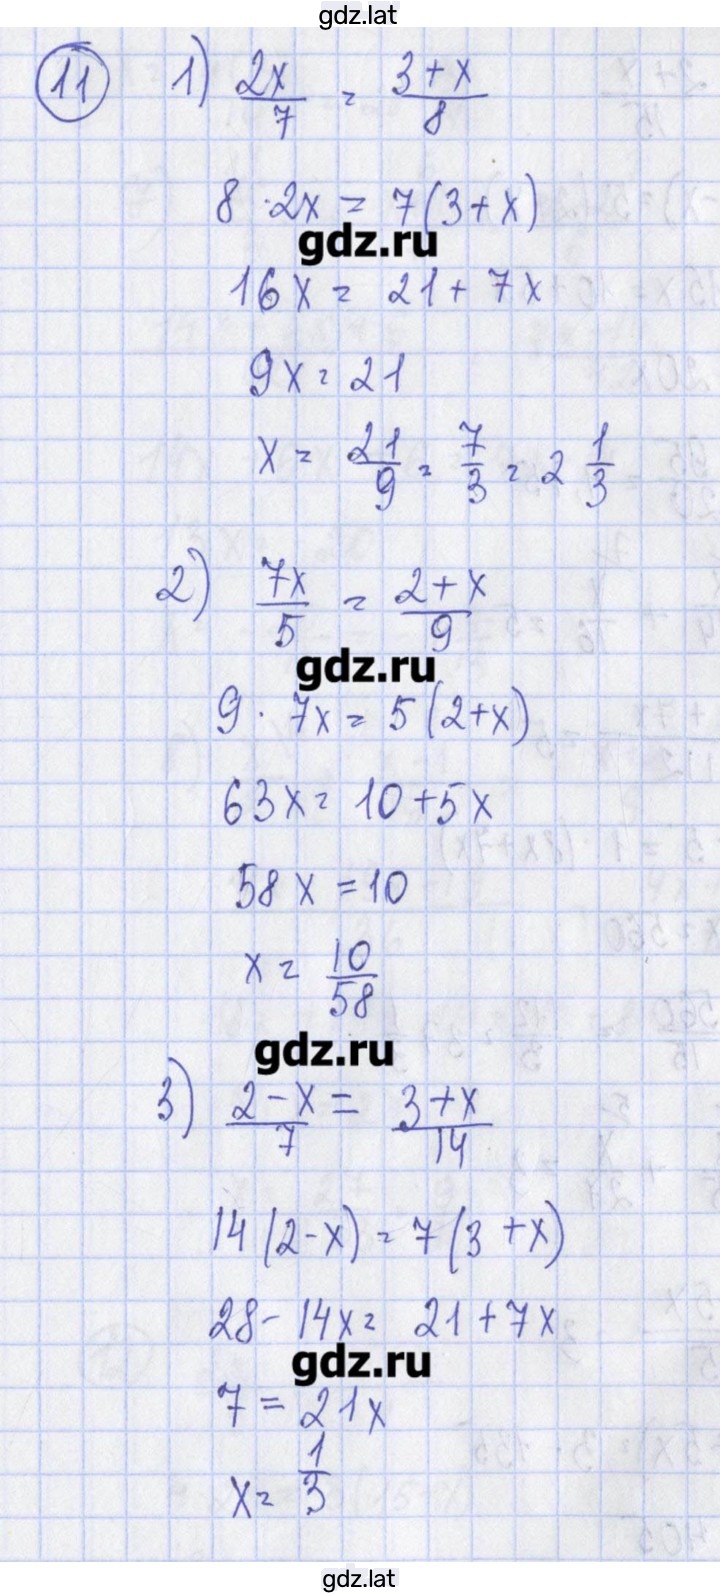 gdz.lat
11 1) 2x/7 = (3+x)/8
8 · 2x = 7(3+x)
gdz.ru
16x = 21 + 7x
9x = 21
x = 21/9 = 7/3 = 2 1/3
2) 7x/5 = (2+x)/9
gdz.ru
9 · 7x = 5(2+x)
63x = 10+5x
58x = 10
x = 10/58
gdz.ru
3) (2-x)/7 = (3+x)/14
14(2-x) = 7(3+x)
28-14x = 21+7x
gdz.ru
7 = 21x
x = 1/3
gdz.lat